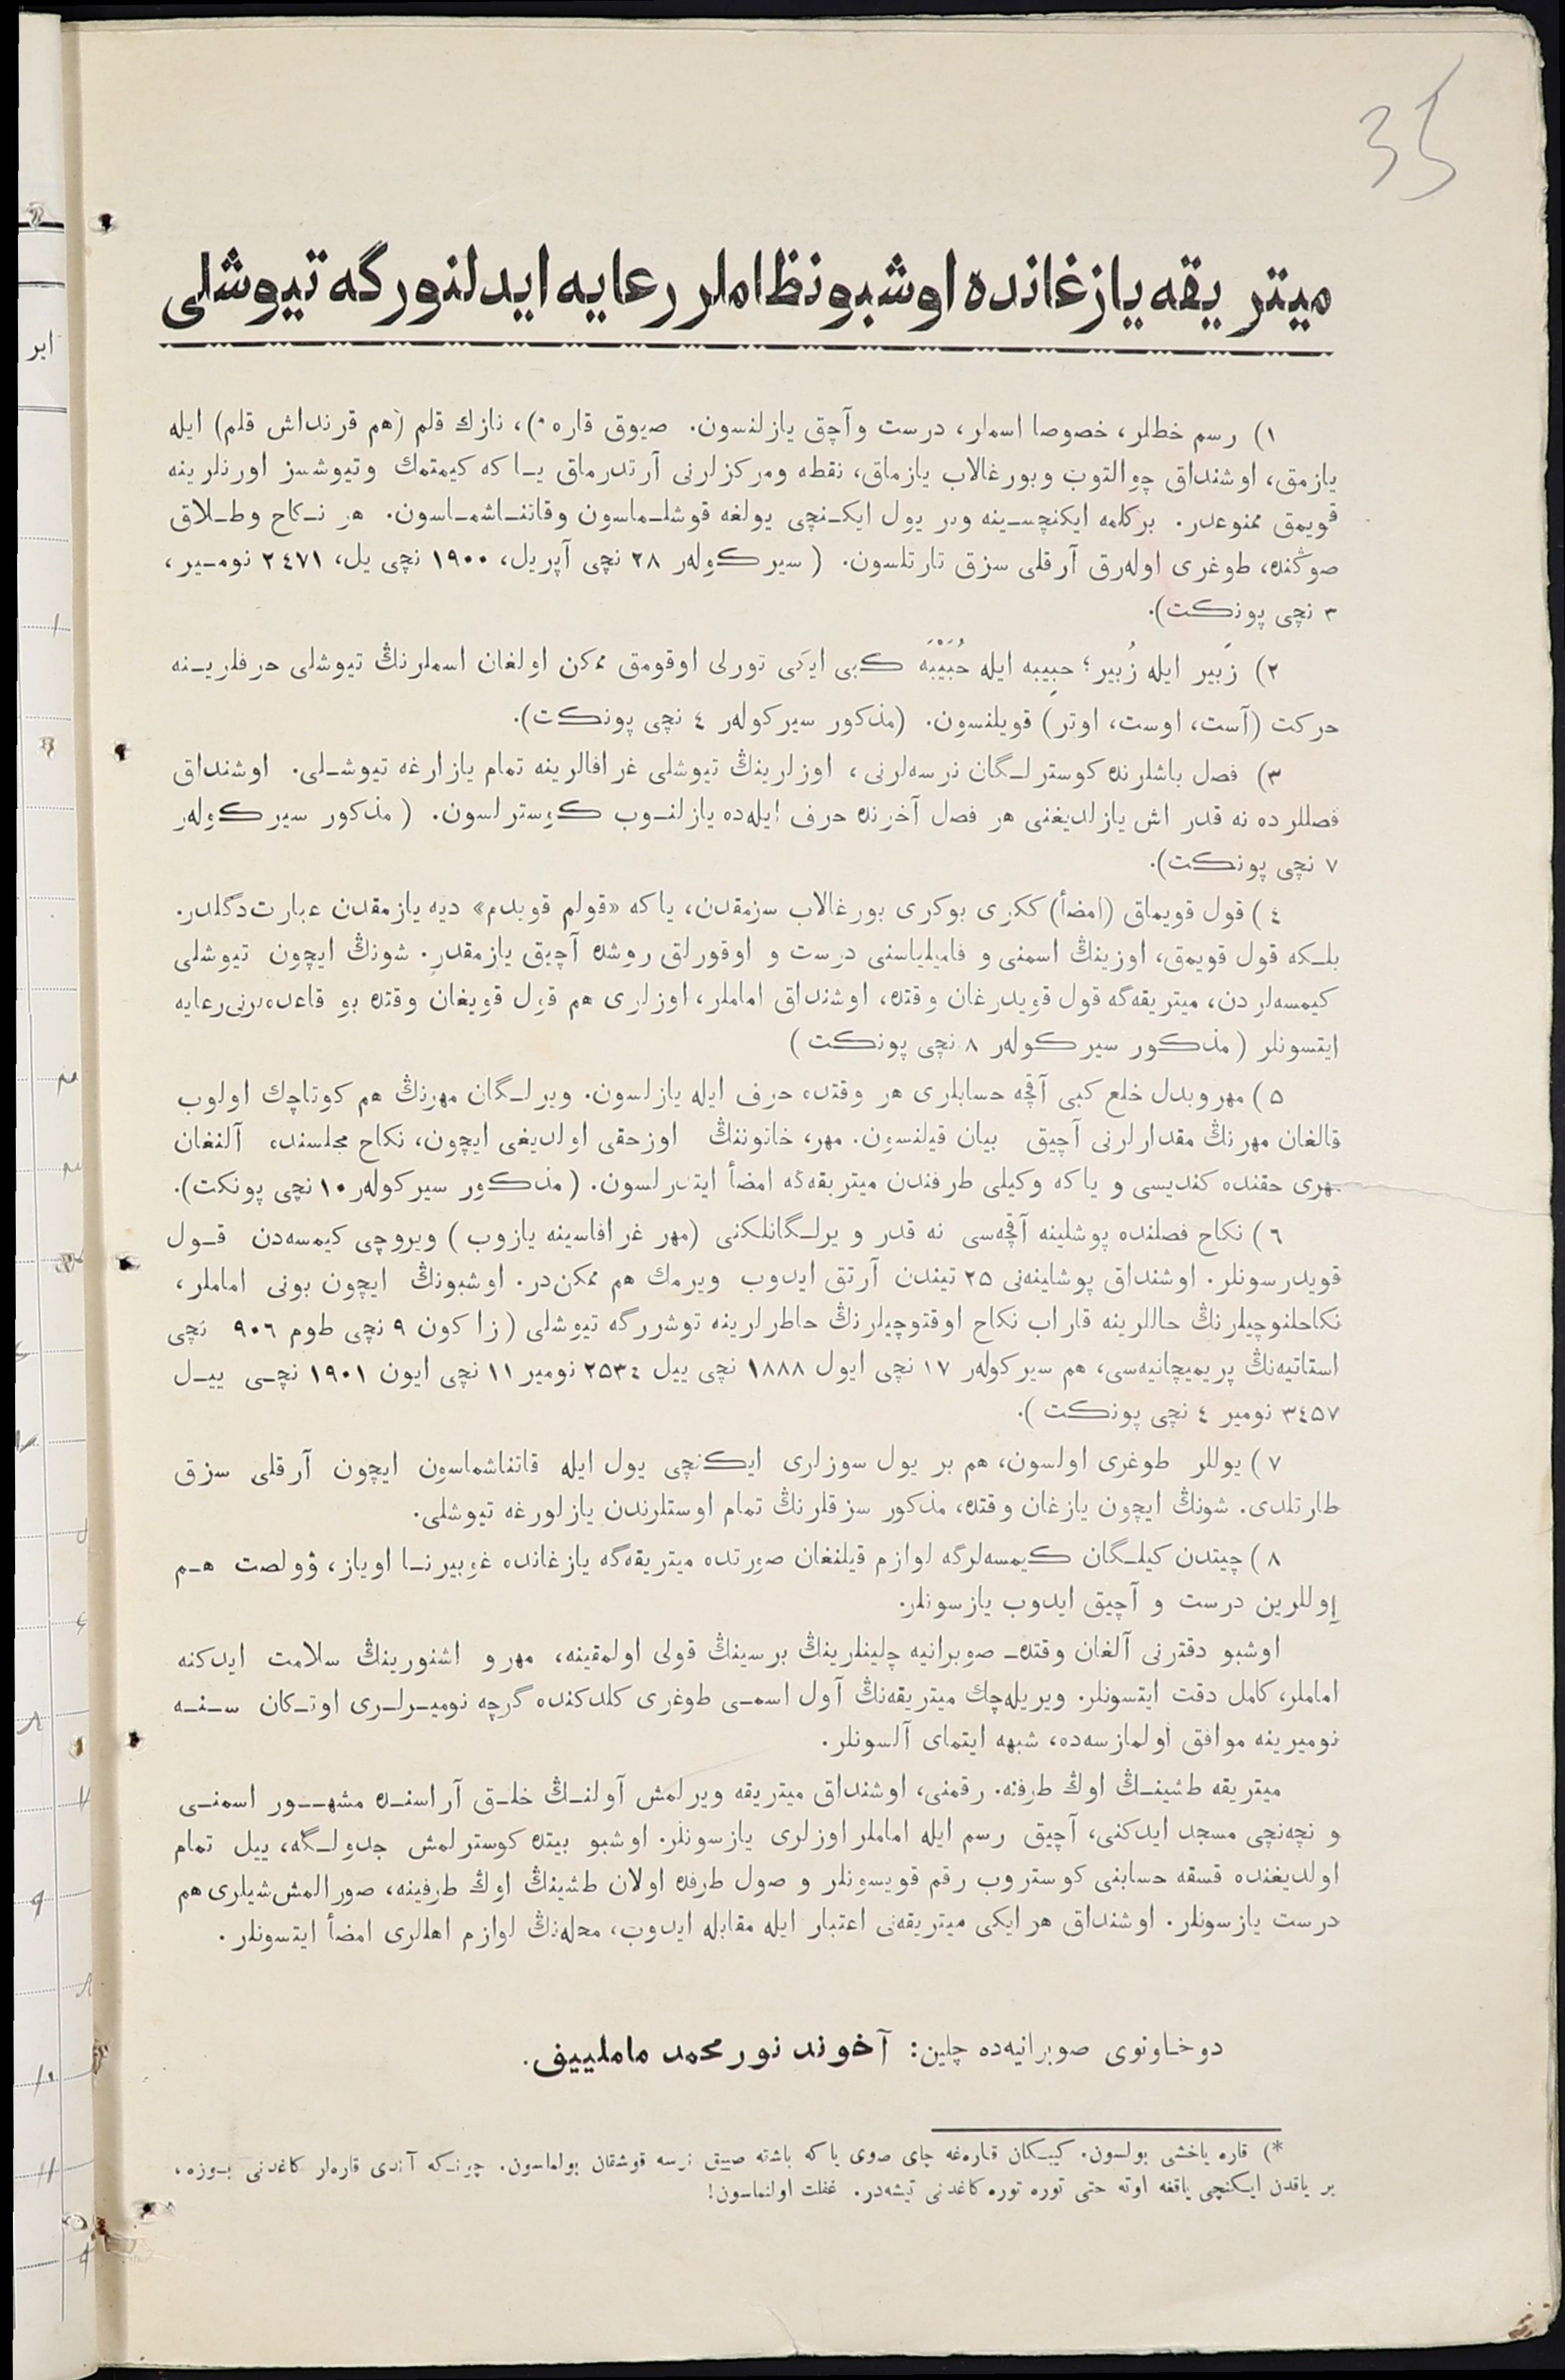 35
میتریقه یازغانده اوشبو نظاملر رعایه ایدلنورگه تیوشلی
۱) رسم خطلر، خصوصا اسملر، درست وآچق یازلنسون. صیوق قاره *)، نازك قلم (هم قرنداش قلم) ایله
یازمق، اوشنداق چوالتوب وبورغالاب یازماق، نقطه ومرکزلرنی آرتدرماق یـا که کیمتمك وتیوشسز اورنلرینه
قویمق ممنوعدر. برکلمه ایکنچسـینه وبر یول ایکـنچی یولغه قوشلـماسون وقاتنـاشمـاسون. هر نـکاح وطـلاق
صوڭنده، طوغری اولەرق آرقلی سزق تارتلسون. (سیرکولەر ۲۸ نچی آپریل، ۱۹۰۰ نچی یل، ۲٤۷۱ نومـیر،
۳ نچی پونکت).
۲) زَبیر ایله زُبیر؛ حبِیبه ایله حُبَیْبَه کبی ایکی تورلی اوقومق ممکن اولغان اسملرنڭ تیوشلی حرفلریـنه
حرکت (آست، اوست، اوتر) قویلنسون. (مذکور سیرکولەر ٤ نچی پونکت).
۳) فصل باشلرنده کوسترلـگان نرسەلرنی، اوزلرینڭ تیوشلی غرافالرینه تمام یازارغه تیوشـلی. اوشنداق
فصللرده نه قدر اش یازلدیغنی هر فصل آخرنده حرف ایله‌ده یازلنـوب کوسترلسون. (مذکور سیرکولەر
۷ نچی پونکت).
٤) قول قویماق (امضأ) ککری بوکری بورغالاب سزمقدن، یاکه «قولم قویدم» دیه یازمقدن عبارت دگلدر.
بلـکه قول قویمق، اوزینڭ اسمنی و فامیلیاسنی درست و اوقورلق روشده آچیق یازمقدر. شونڭ ایچون تیوشلی
کیمسەلردن، میتریقەگه قول قویدرغان وقتده، اوشنداق اماملر، اوزلری هم قول قویغان وقتده بو قاعده‌لرنی رعایه
ایتسونلر (مذکور سیرکولەر ۸ نچی پونکت)
٥) مهر وبدل خلع کبی آقچه حسابلری هر وقتده حرف ایله یازلسون. ویرلـگان مهرنڭ هم کوتاچك اولوب
قالغان مهرنڭ مقدارلرنی آچیق بیان قیلنسون. مهر، خاتوننڭ اوز حقی اولدیغی ایچون، نکاح مجلسنده آلنغان
مهری حقنده کندیسی و یاکه وکیلی طرفندن میتریقەگه امضأ ایتدرلسون. (مذکور سیرکولەر ۱۰ نچی پونکت).
٦) نکاح فصلنده پوشلینه آقچەسی نه قدر ویرلـگانلکنی (مهر غرافاسینه یازوب) ویروچی کیمسەدن قـول
قویدرسونلر. اوشنداق پوشلینەنی ۲٥ تیندن آرتق ایدوب ویرمك هم ممکن‌در. اوشبونڭ ایچون بونی اماملر،
نکاحلنوچیلرنڭ حاللرینه قاراب نکاح اوقتوچیلرنڭ خاطرلرینه توشررگه تیوشلی (زاکون ۹ نچی طوم ۹۰٦ نچی
استاتیەنڭ پریمیچانیەسی، هم سیرکولەر ۱۷ نچی ایول ۱۸۸۸ نچی ییل ۲٥۳٤ نومیر ۱۱ نچی ایون ۱۹۰۱ نچـی ییـل
۳٤٥۷ نومیر ٤ نچی پونکت).
۷) یوللر طوغری اولسون، هم بر یول سوزلری ایکنچی یول ایله قاتناشماسون ایچون آرقلی سزق
طارتلدی. شونڭ ایچون یازغان وقتده، مذکور سزقلرنڭ تمام اوستلرندن یازلورغه تیوشلی.
۸) چیتدن کیلـگان کیمسەلرگه لوازم قیلنغان صورتده میتریقەگه یازغانده غوبیرنـا اویاز، ۋولصت هـم
اوللرین درست و آچیق ایدوب یازسونلر.
اوشبو دفترنی آلغان وقتده‌ـ صوبرانیه چلینلرینڭ برسینڭ قولی اولمقینه، مهر و اشنورینڭ سلامت ایدکنه
اماملر، کامل دقت ایتسونلر. ویریلەچك میتریقەنڭ آول اسمـی طوغری کلدکنده گرچه نومیـرلـری اوتـکان سـنـه
نومیرینه موافق اولمازسه‌ده، شبهه ایتمای آلسونلر.
میتریقه طشینـڭ اوڭ طرفنه. رقمنی، اوشنداق میتریقه ویرلمش آولنـڭ خلـق آراسنـده مشهــور اسمنـی
و نچەنچی مسجد ایدکنی، آچیق رسم ایله اماملر اوزلری یازسونلر. اوشبو بیتده کوسترلمش جدولـگه، ییل تمام
اولدیغنده قسقه حسابنی کوستروب رقم قویسونلر و صول طرفده اولان طشینڭ اوڭ طرفینه، صورالمش شیلری هم
درست یازسونلر. اوشنداق هر ایکی میتریقەنی اعتبار ایله مقابله ایدوب، محلەنڭ لوازم اهللری امضأ ایتسونلر.
دوخاونوی صوبرانیه‌ده چلین: آخوند نور محمد ماملییف.
*) قاره یاخشی بولسون. کیبـکان قاره‌غه چای صوی یاکه باشقه صییق نرسه قوشقان بولماسون. چونـکه آندی قاره‌لر کاغدنی بـوزه،
بر یاقدن ایـکنچی یاققه اوته حتی توره توره کاغدنی تیشەدر. غفلت اولنماسون!